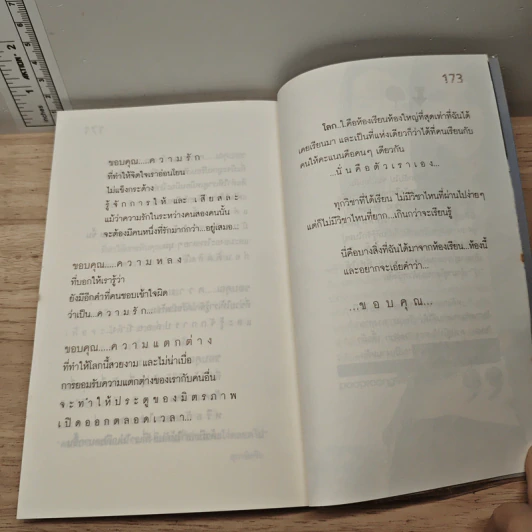 ขอบคุณ.....ค ว า ม รั ก
ที่ทำให้จิตใจเราอ่อนโยน
ไม่แข็งกระด้าง
รู้ จั ก ก า ร ใ ห้ และ เ สี ย ส ล ะ
แม้ว่าความรักในระหว่างคนสองคนนั้น
จะต้องมีคนหนึ่งที่รักมากกว่า...อยู่เสมอ...
ขอบคุณ.....ค ว า ม ห ล ง
ที่บอกให้เรารู้ว่า
ยังมีอีกคำที่คนชอบเข้าใจผิด
ว่าเป็น...ค ว า ม รั ก...
ขอบคุณ.....ค ว า ม แ ต ก ต่ า ง
ที่ทำให้โลกนี้สวยงาม และไม่น่าเบื่อ
การยอมรับความแตกต่างของเรากับคนอื่น
จ ะ ทำ ใ ห้ ป ร ะ ตู ข อ ง มิ ต ร ภ า พ
เ ปิ ด อ อ ก ต ล อ ด เ ว ล า...
173
โลก..คือห้องเรียนห้องใหญ่ที่สุดเท่าที่ฉันได้
เคยเรียนมา และเป็นที่แห่งเดียวที่ว่าได้ที่คนเรียนกับ
คนให้คะแนนคือคนๆ เดียวกัน
...นั่ น คื อ ตั ว เ ร า เ อ ง...
ทุกวิชาที่ได้เรียน ไม่มีวิชาไหนที่ผ่านไปง่ายๆ
แต่ก็ไม่มีวิชาไหนที่ยาก...เกินกว่าจะเรียนรู้
นี่คือบางสิ่งที่ฉันได้มาจากห้องเรียน...ห้องนี้
และอยากจะเอ่ยคำว่า...
...ข อ บ คุ ณ...
INCHES
ACTION
1
2
7